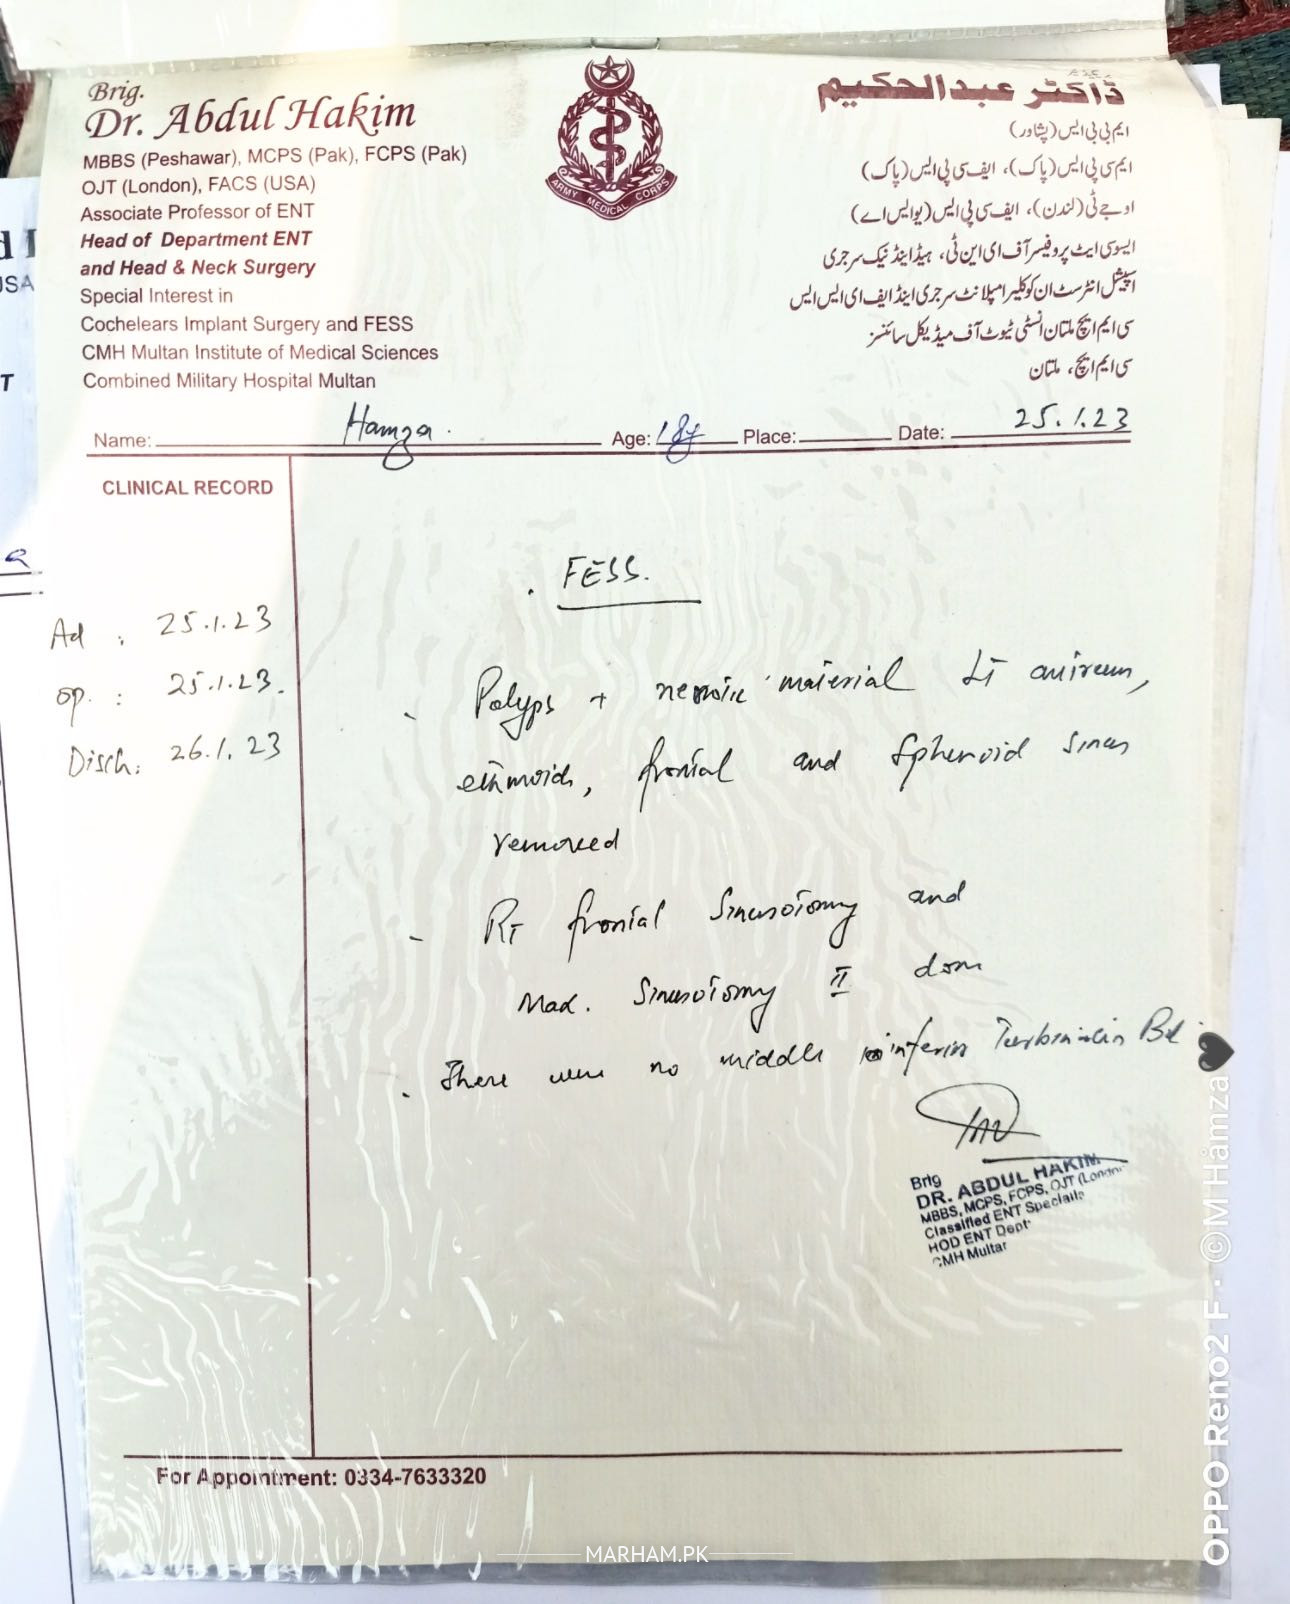 Brig.
Dr. Abdul Hakim
MBBS (Peshawar), MCPS (Pak), FCPS (Pak)
OJT (London), FACS (USA)
Associate Professor of ENT
Head of Department ENT
and Head & Neck Surgery
Special Interest in
Cochelears Implant Surgery and FESS
CMH Multan Institute of Medical Sciences
Combined Military Hospital Multan
ARMY MEDICAL CORPS
ڈاکٹر عبدالحکیم
ایم بی بی ایس (پشاور)
ایم سی پی ایس (پاک)، ایف سی پی ایس (پاک)
او جے ٹی (لندن)، ایف سی پی ایس (یو ایس اے)
ایسوسی ایٹ پروفیسر آف ای این ٹی، ہیڈ اینڈ نیک سرجری
اسپیشل انٹرسٹ ان کوکلیر امپلانٹ سرجری اینڈ ایف ای ایس ایس
سی ایم ایچ ملتان انسٹی ٹیوٹ آف میڈیکل سائنسز
سی ایم ایچ، ملتان
Name: Hamza. Age: 18y Place: Date: 25.1.23
CLINICAL RECORD
Ad : 25.1.23
op. : 25.1.23.
Disch: 26.1.23
. FESS.
- Polyps + material Lt antrum,
ethmoids, frontal and Sphenoid sinus
removed
- Rt frontal Sinusotomy and
Max. Sinusotomy II done
. There were no middle inferior Turbinates
Brig
DR. ABDUL HAKIM
MBBS, MCPS, FCPS, OJT (London
Classified ENT Specialis
HOD ENT Dept
CMH Multan
For Appointment: 0334-7633320
MARHAM.PK
OPPO Reno2 F · © M Håmza🖤